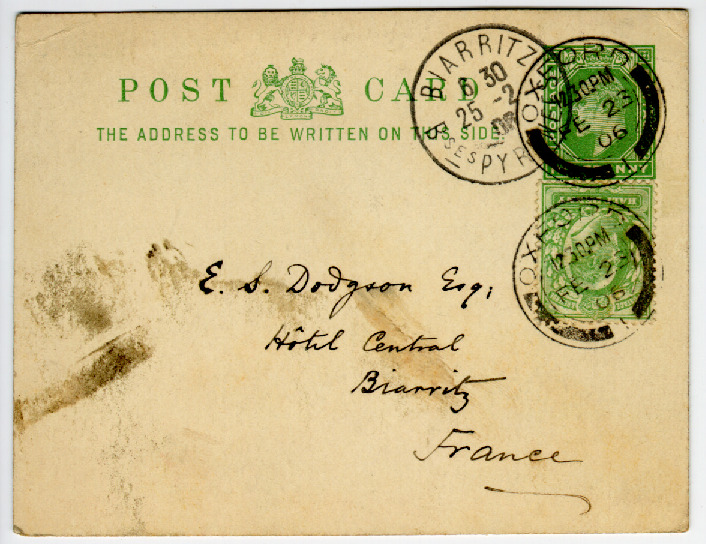 POST CARD
THE ADDRESS TO BE WRITTEN ON THIS SIDE.
BIARRITZ
6 30
25 -2
06
BSES PYR
OXFORD
12.30PM
FE 23
06
OXFORD
12.30PM
FE 23
06
E. S. Dodgson Esq;
Hôtel Central
Biarritz
France